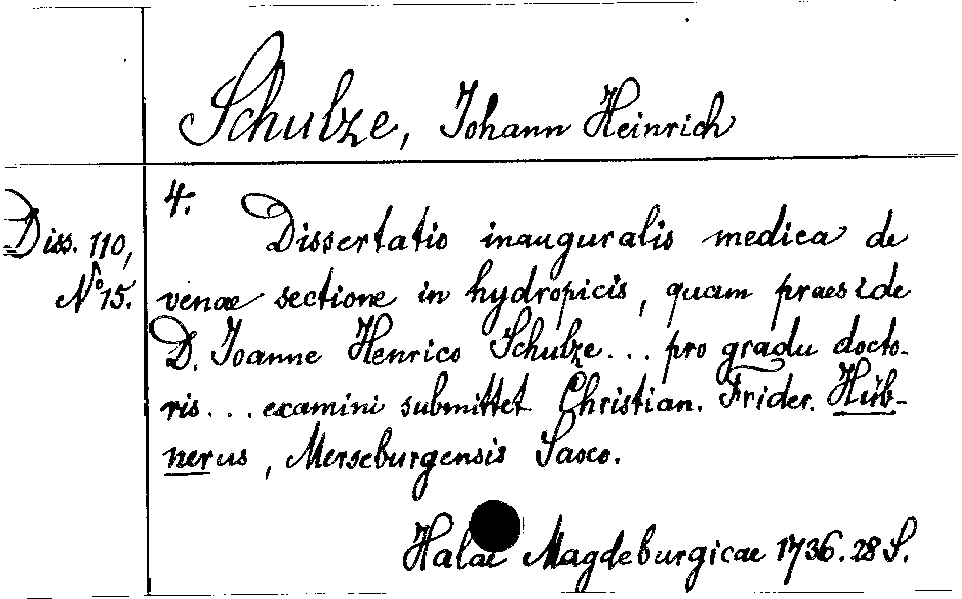 Schulze, Johann Heinrich
4.
Diss. 110,
No 15.
Dissertatio inauguralis medica de
venae sectione in hydropicis, quam praeside
D. Joanne Henrico Schulze... pro gradu docto-
ris... examini submittet Christian. Frider. Hüb-
nerus, Merseburgensis Saxo.
Halae Magdeburgicae 1736. 28 S.